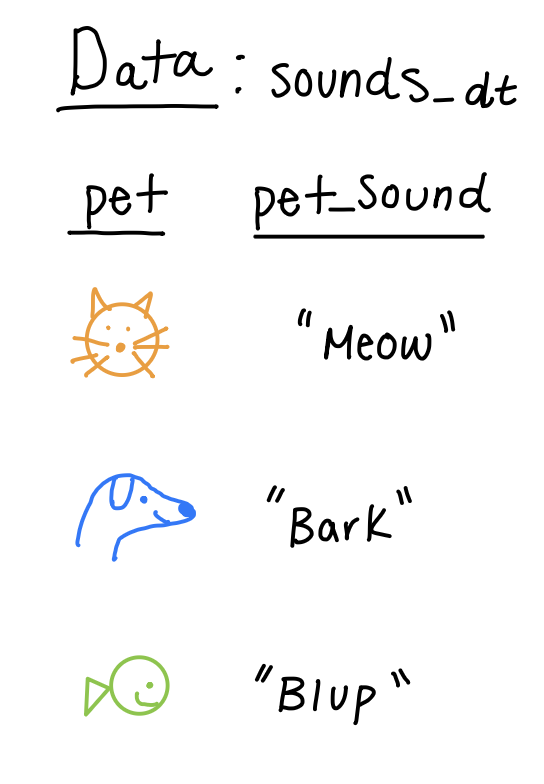 Data: sounds_dt
pet pet_sound
"Meow"
"Bark"
"Blup"